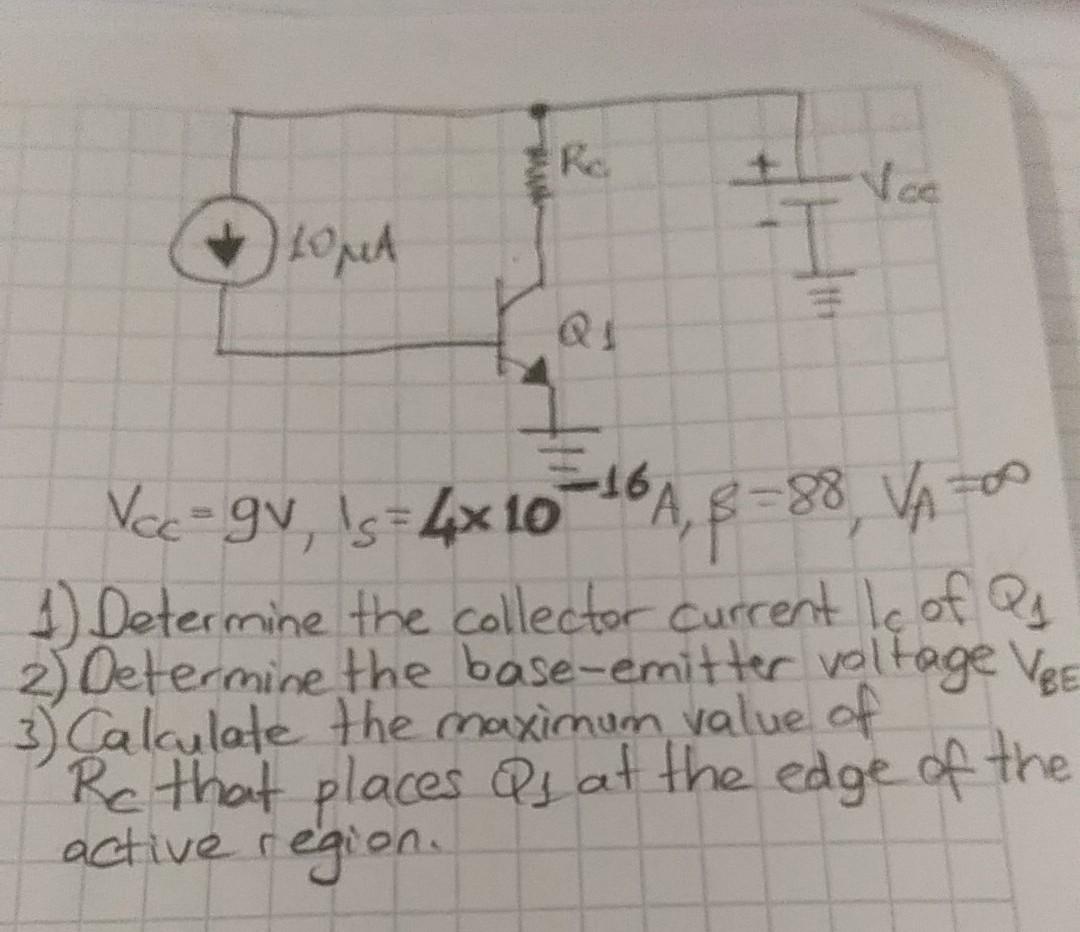 Rc
+
Vcc
-
10μA
Q1
Vcc=9V, Is=4x10^-16A, β=88, VA=∞
1) Determine the collector current Ic of Q1
2) Determine the base-emitter voltage VBE
3) Calculate the maximum value of
Rc that places Q1 at the edge of the
active region.